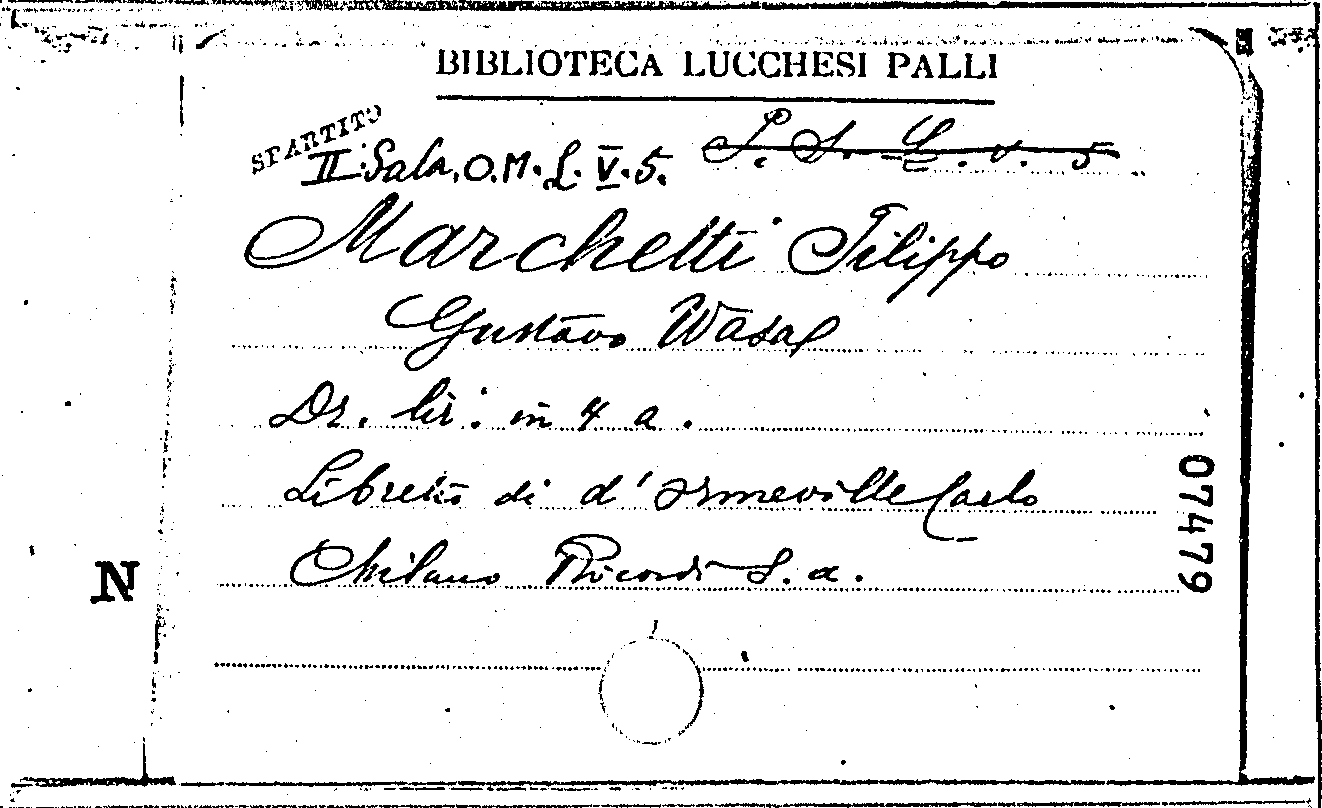 BIBLIOTECA LUCCHESI PALLI
SPARTITO
II Sala. O.M. L. V. 5. S. S. L. V. 5
Marchetti Filippo
Gustavo Wasa
Dr. lir. in 4 a.
Libretto di d'Ormeville Carlo
Milano Ricordi S. a.
07479
N